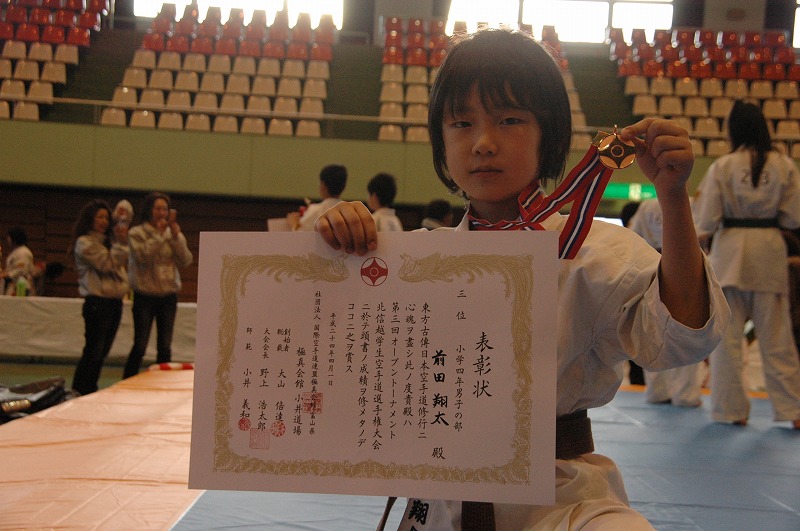 表彰状
三位 小学四年男子の部
前田 翔太 殿
東方古傳日本空手道修行ニ
心魂ヲ盡シ此ノ度貴殿ハ
第三回オープントーナメント
北信越学生空手道選手権大会
ニ於テ頭書ノ成績ヲ修メタノデ
ココニ之ヲ賞ス
平成二十四年四月一日
社団法人 国際空手道連盟極真
極真会館 小井道場
創始者
総裁 大山 倍達
大会会長 野上 浩太郎
師範 小井 義和
翔